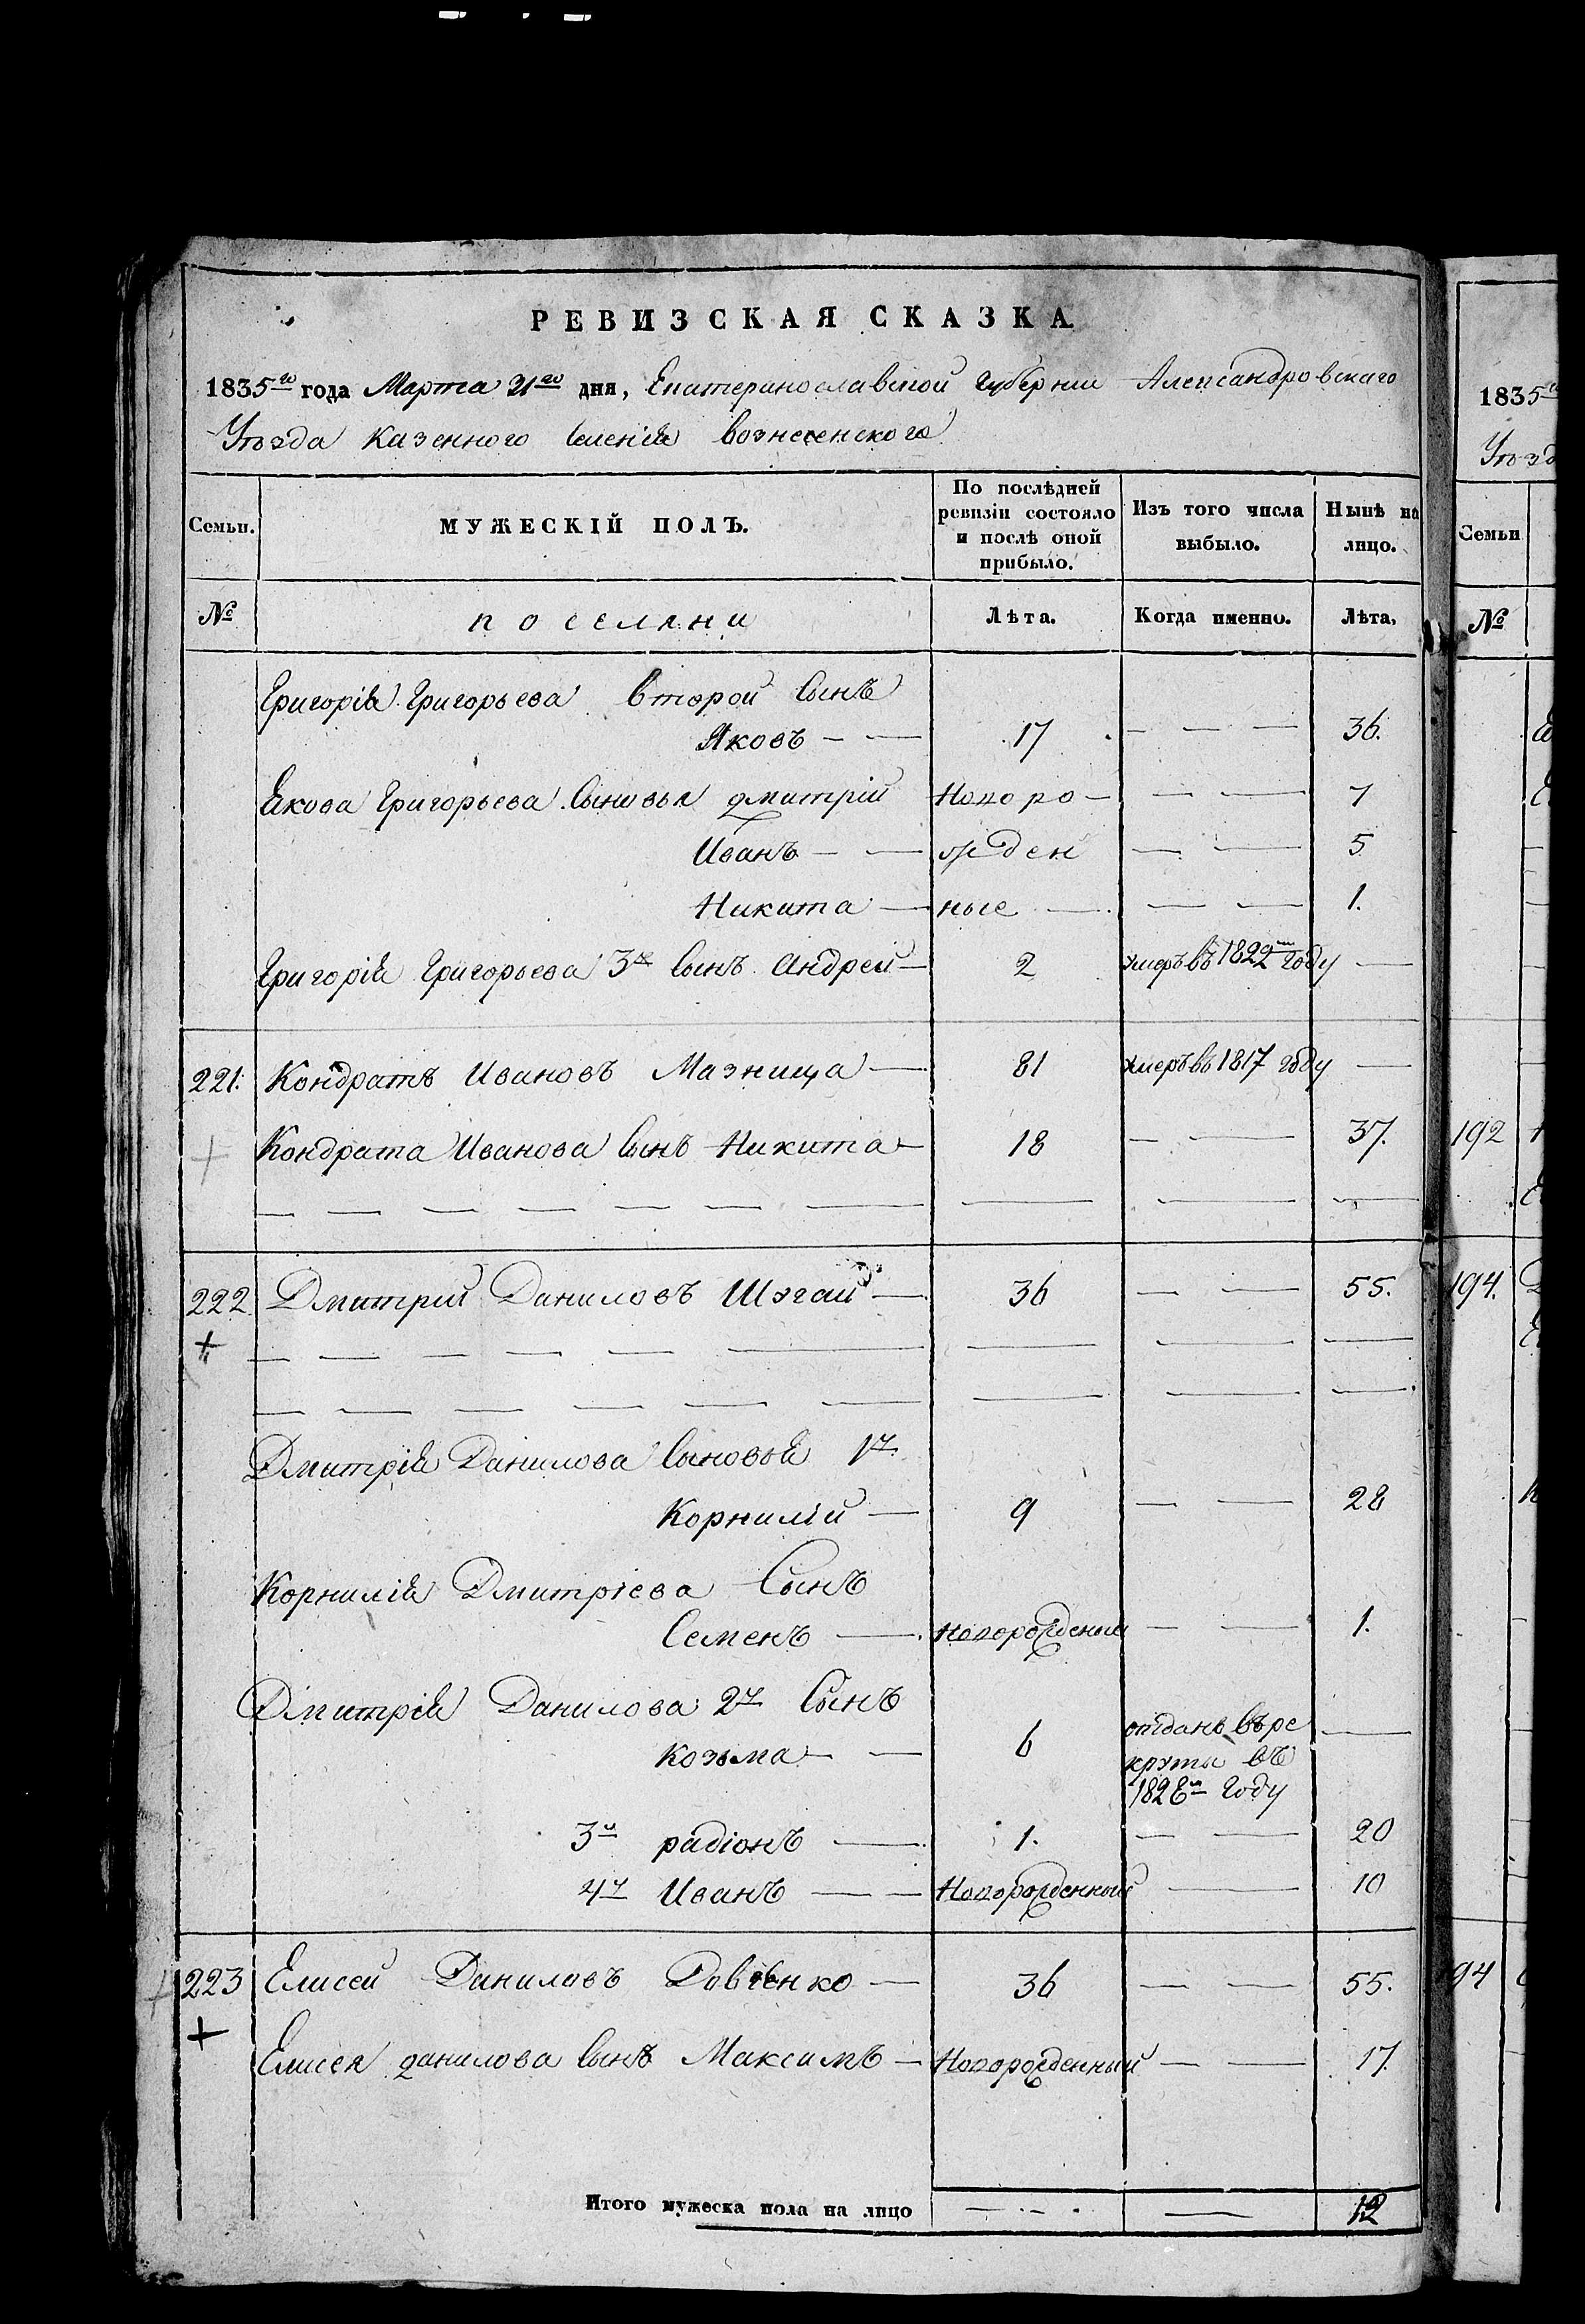 РЕВИЗСКАЯ СКАЗКА
1835го года Марта 21го дня, Екатеринославской Губернии Александровскаго
Уѣзда казенного селенія вознесенского
Семьи. МУЖЕСКІЙ ПОЛЪ. По послѣдней ревизіи состояло и послѣ оной прибыло. Изъ того числа выбыло. Нынѣ на лицо.
№ поселяни Лѣта. Когда именно. Лѣта.
Григорія Григорьева второй Сынъ
Яковъ 17 36.
Якова Григорьева Сыновья дмитрій Новоро 7
Иванъ жден 5
Никита ные 1.
Григорія Григорьева 3й Сынъ Андрей 2 умеръ въ 1822м году
221. Кондратъ Ивановъ Мазница 81 умеръ въ 1817 году
Кондрата Иванова Сынъ Никита 18 37.
222 Дмитрий Даниловъ 36 55.
Дмитрія Данилова Сыновья 1й
Корнилій 9 28
Корнилія Дмитріева Сынъ
Семенъ Новорожденый 1.
Дмитрія Данилова 2й Сынъ
Козьма 6 отданъ въ ре
круты въ
182 году
3й радіонъ 1. 20
4й Иванъ Новорожденный 10
223 Елисей Даниловъ 36 55.
Елисея данилова Сынъ Максимъ Новорожденный 17.
Итого мужеска пола на лицо 12
1835
Уѣзд
Семьи
№
192
194.
94